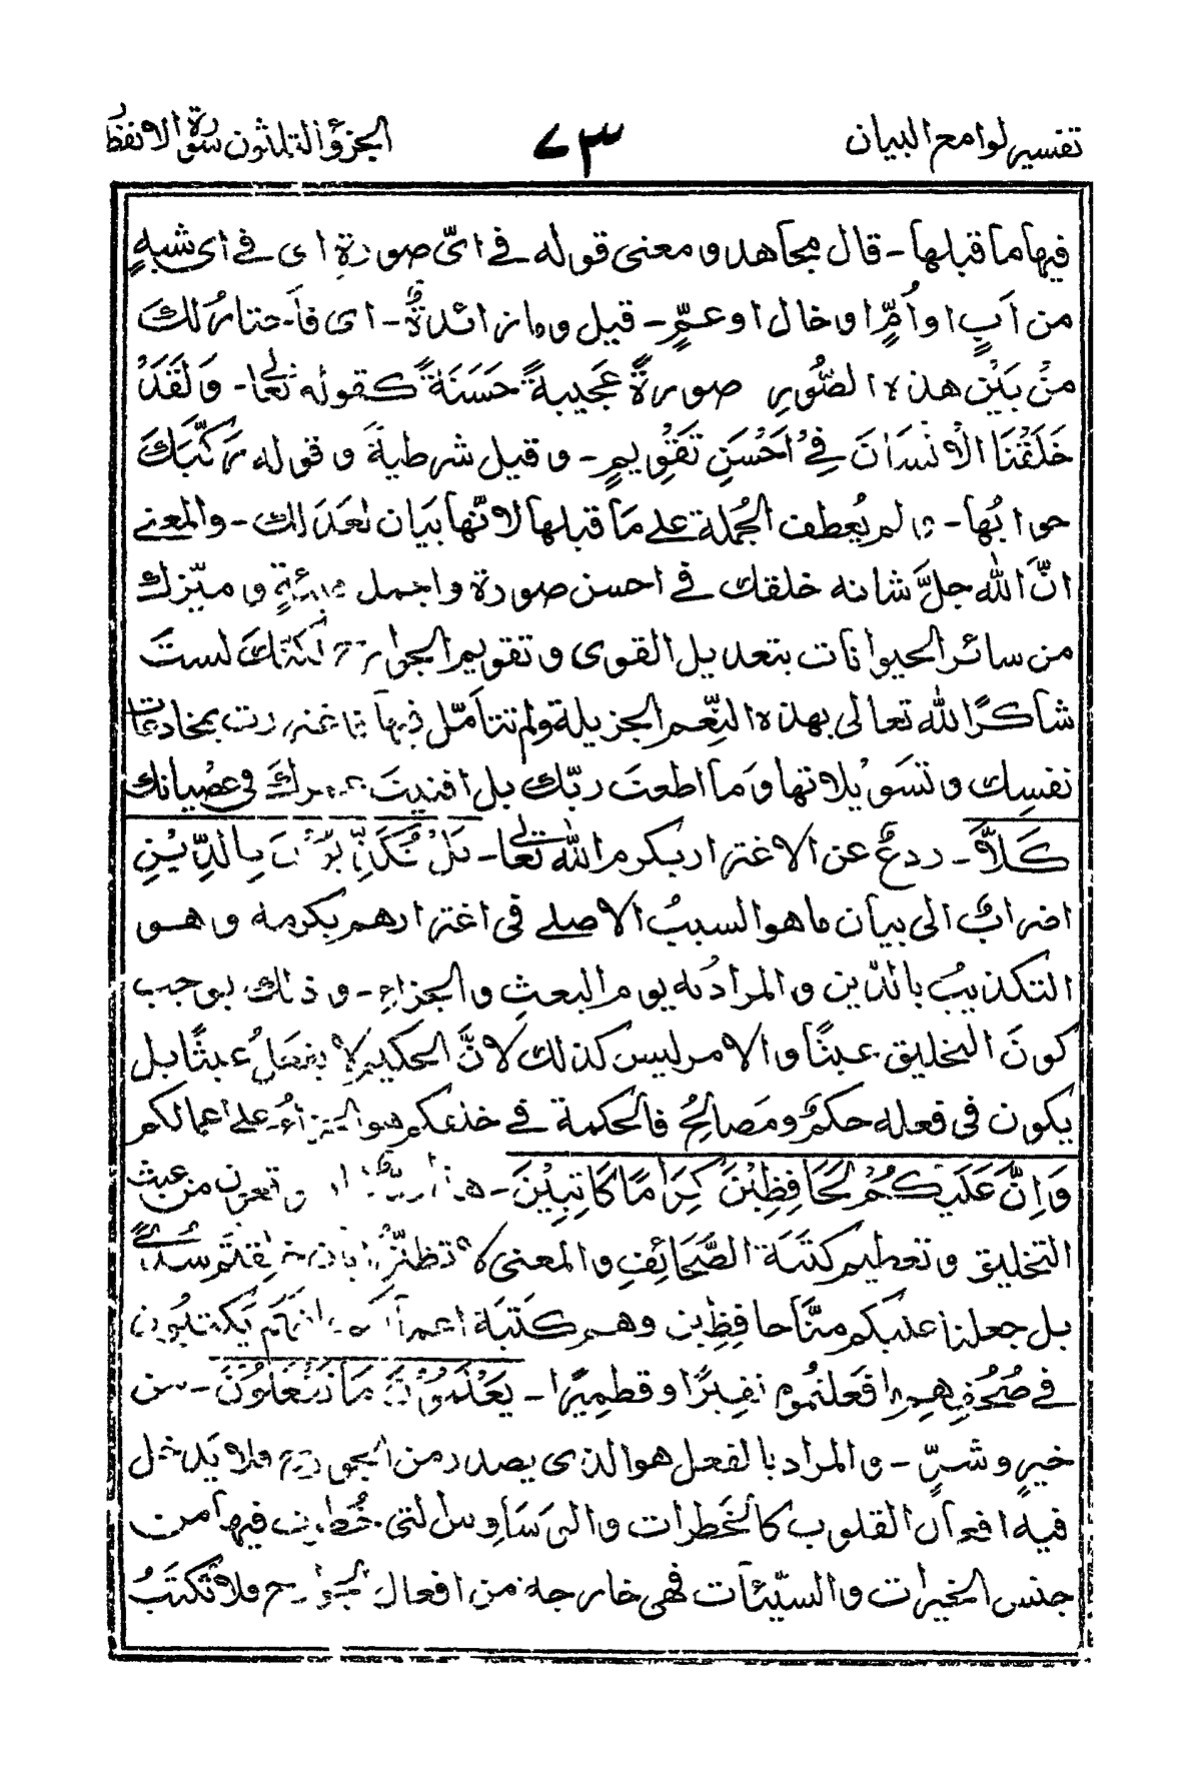 تفسير لوامع البيان ٧٣ الجزؤ الثلثون سورة الانفط
فيها ما قبلها - قال مجاهد و معنى قوله في ايّ صورة اى في اى شبهٍ
من اَبٍ او اُمٍّ او خال او عمٍّ - قيل و ما زائدةٌ - اى فاَختارُ لك
مِنْ بَيْنِ هذه الصُّورِ صورةً عَجيبةً حَسَنَةً كقوله تعالى - وَلَقَدْ
خَلَقْنَا الْاِنْسَانَ فِيْ اَحْسَنِ تَقْوِيمٍ - و قيل شرطيةً و قوله رَكَّبَكَ
جوابُها - و لم يُعطف الجُملة على مَا قبلها لانّها بَيَان لعَدَلك - والمعنى
انَّ الله جلَّ شانه خلقك في احسن صورة و اجمل هيئةٍ و ميّزك
من سائر الحيوانات بتعديل القوى و تقويم الجوارح لكنّكَ لستَ
شاكرًا لله تعالى بهذه النِّعم الجزيلة ولم تتاَمّل فيها فاغتررت بمخادعات
نفسِك و تسَوْيلاتها وَمَا اطعتَ ربّك بل افنيتَ عمرك في عصْيانك
كَلَّا - ردعٌ عن الاغترار بكرم الله تعالى - بَلْ تُكَذِّبُوْنَ بِالدِّيْنِ
اضراب الى بيان ما هو السببُ الاصلى في اغترارهم بكرمه و هو
التكذيبُ بالدّين و المرادُ به يوم البعثِ و الجزاءِ - و ذلك يوجب
كونَ التخليق عبثًا و الامر ليس كذلك لانَّ الحكيم لا يفعلُ عبثًا بل
يكون في فعله حكمٌ و مَصالحُ فالحكمة في خلقكم هو الجزاءُ على اعمالكم
وَاِنَّ عَلَيْكُمْ لَحَافِظِيْنَ كِرَامًا كَاتِبِيْنَ - هذا و من عبث
التخليق و تعظيم كتَبَة الصَّحَائفِ و المعنى لا تظنّوا خلقتم سدًى
بل جعلنا عليكم منَّا حافِظِين وهم كَتَبَة يَكتبُون
في صُحُفِهم ما فَعلتُموه نقيرًا و قطميرًا - يَعْلَمُوْنَ مَا تَفْعَلُوْنَ - من
خيرٍ و شرٍّ - و المراد بالفعل هو الذى يصدر من الجوارح فلا يَدخل
فيه افعال القلوب كالخَطرات و الوَسَاوِس التى فيها من
جنس الخيرات و السيّئات فهى خارجة من افعال الجوارح فلا تُكتَبُ